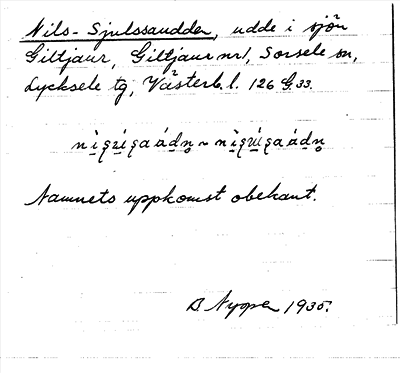 Nils-Sjulssaudden, udde i sjön
Giltjaur, Giltjaur nr 1, Sorsele sn,
Lycksele tg, Västerb. l. 126 G.33.
Namnets uppkomst obekant.
B Nyper 1935.